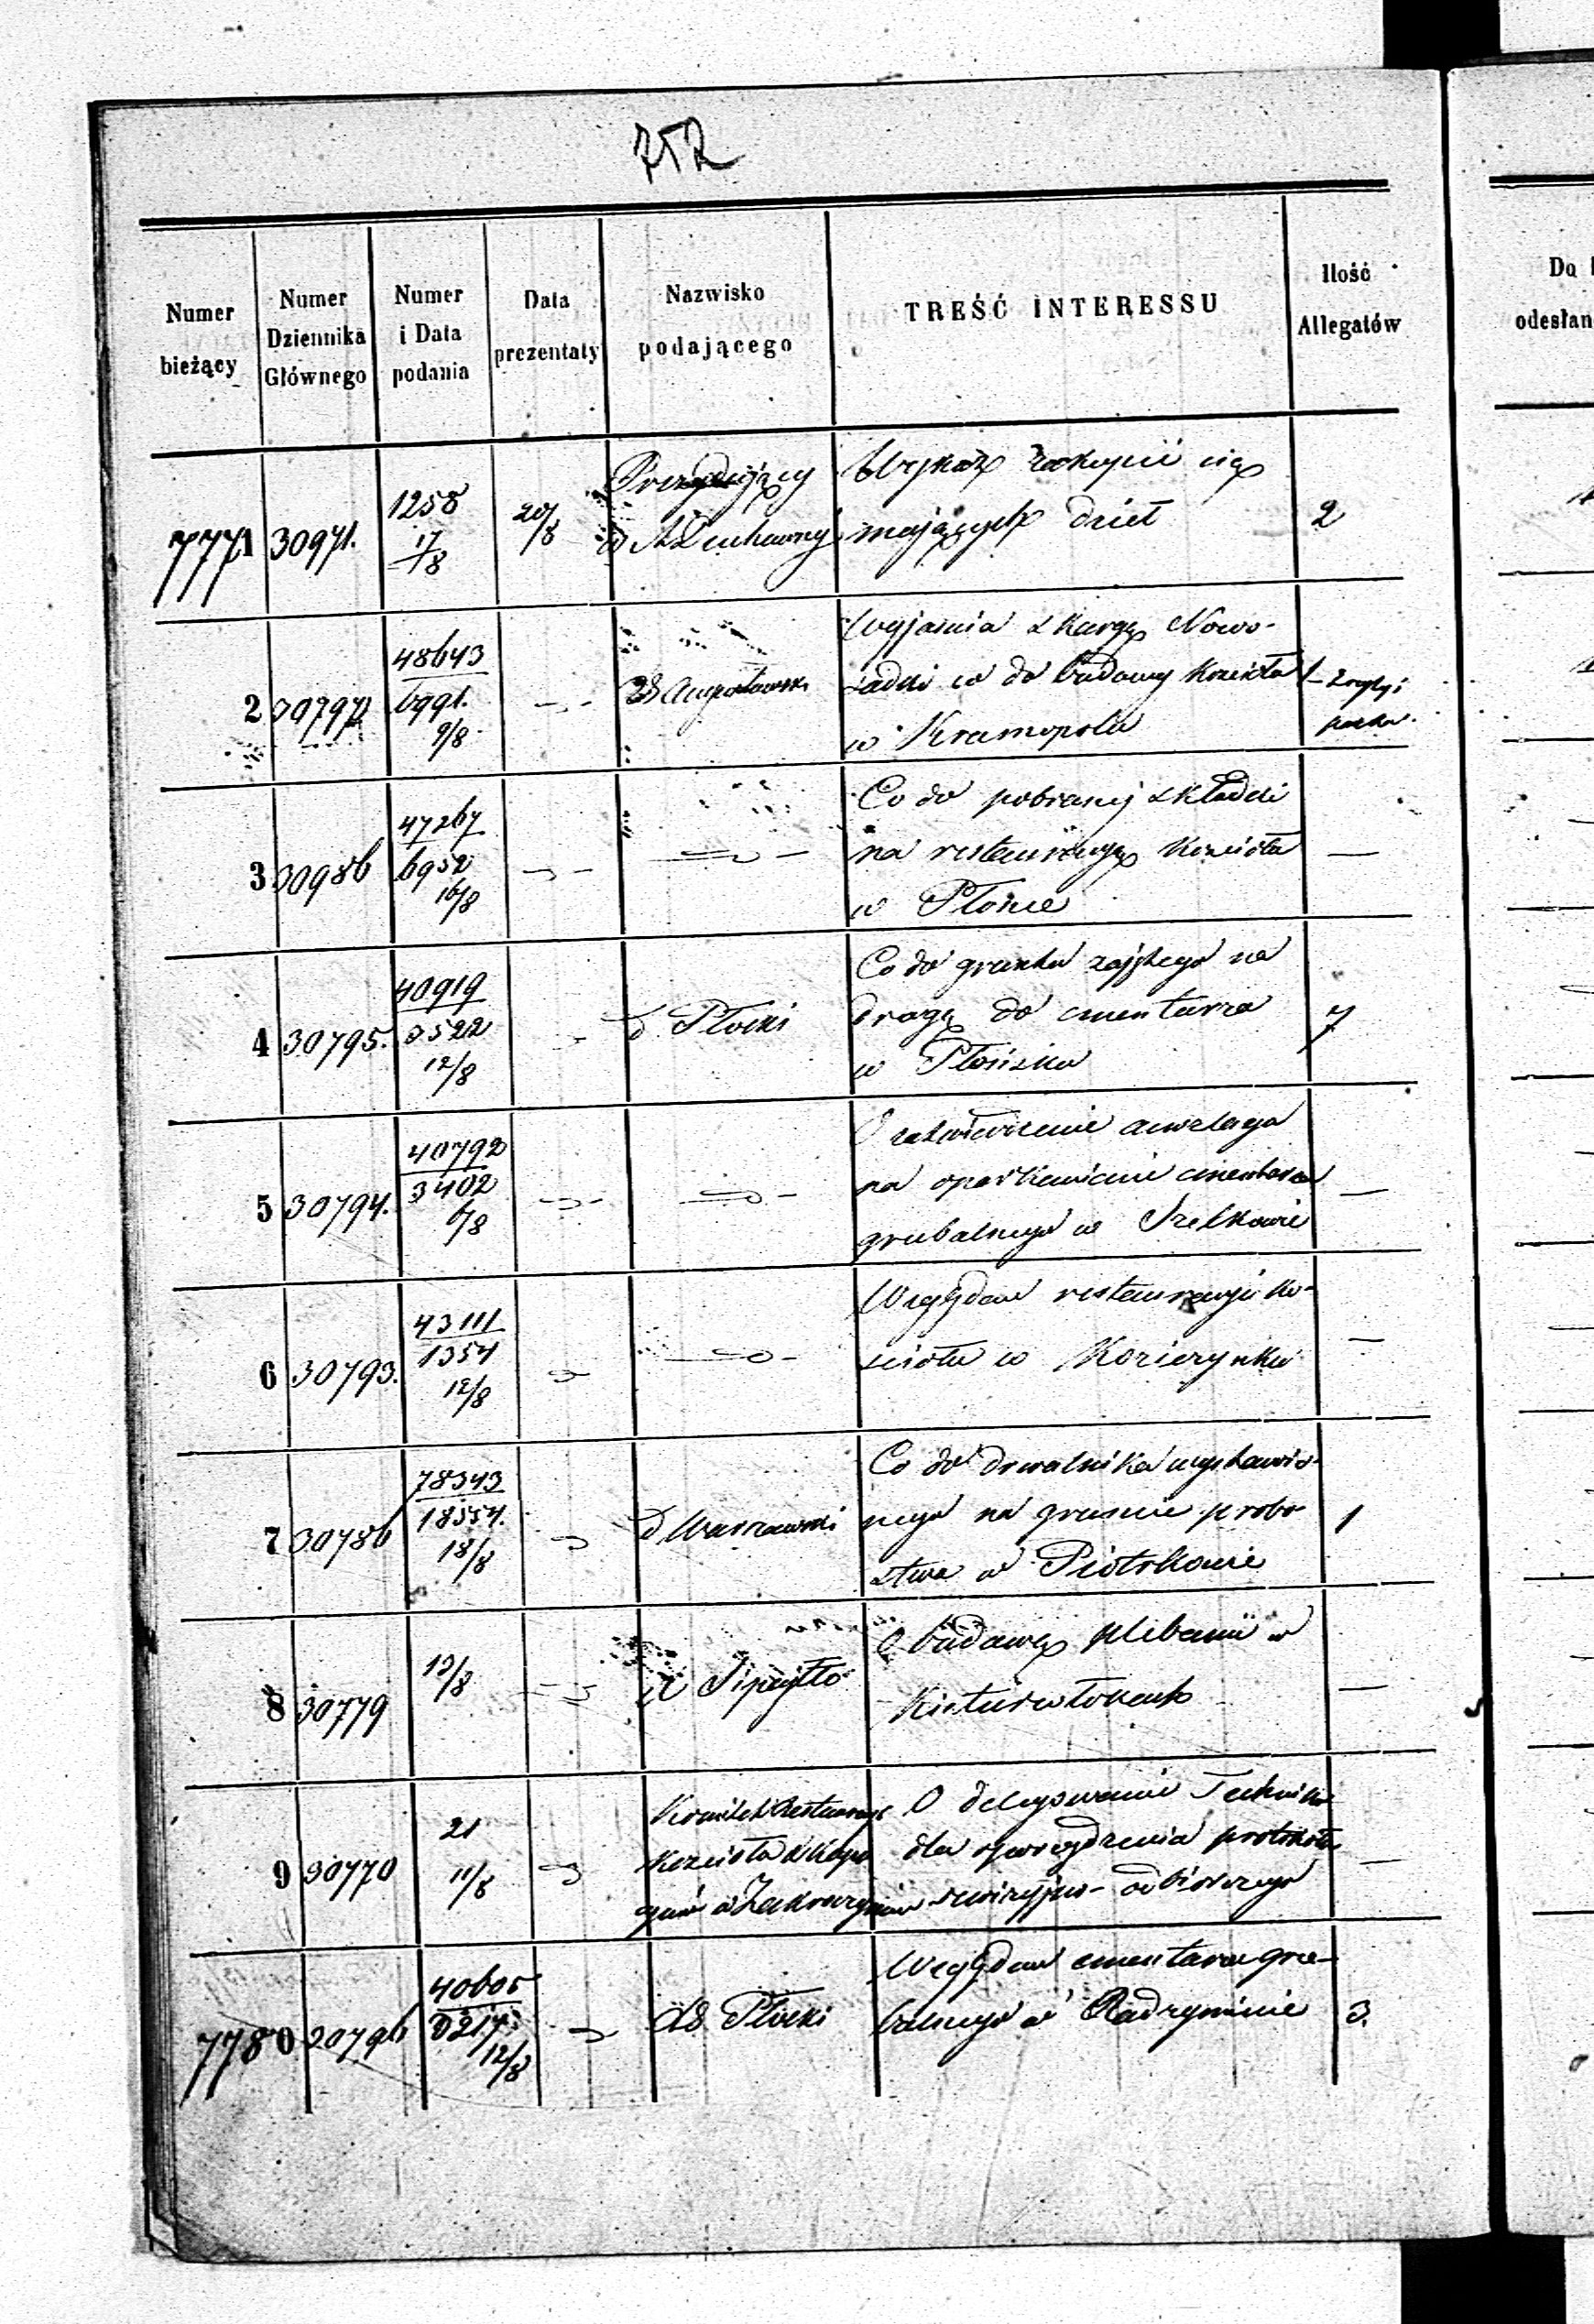 752
Numer bieżący
Numer Dziennika Głównego
Numer i Data podania
Data prezentaty
Nazwisko podającego
TREŚĆ INTERESSU
Ilość Allegatów
Do
odesłan
7771 30971. 1258 17/8 20/8
Prezydujący
w Duchownej
Wykaz zakupić się
mających dzieł
2
2 30797 48643 6991. 9/8
Augustowski
Wyjaśnia skargę Nowo-
sadki co do budowy kościoła
w Krasnopolu
3 30986 47267 6952 16/8
Co do pobranej składki
na restauracyę kościoła
w Płonce
—
4 30795. 40919 3522 12/8
d Płocki
Co do gruntu zajętego na
drogę do cmentarza
w Płońsku
7
5 30794. 40792 3402 6/8
O zatwierdzenie anszlagu
na oparkanienie cmentarza
grzebalnego w Szelkowie
—
6 30793. 43111 1354 12/8
Względem restauracyi ko-
ścioła w Koziczynku
—
7 30786 78343 18554. 18/8
d Warszawski
Co do drwalnika wystawio-
nego na gruncie probo
stwa w Piotrkowie
1
8 30779 13/8
O budowę plebanii w
—
9 30770 21 11/8
Komitet Restauracyi
Kościoła
w Zakroczymiu
O delegowanie Technika
dla sporządzenia protokółu
rewizyjno-odbiorczego
—
7780 30796 40605 3217 12/8
d Płocki
Względem cmentarza grze-
balnego w Radzyminie
3.